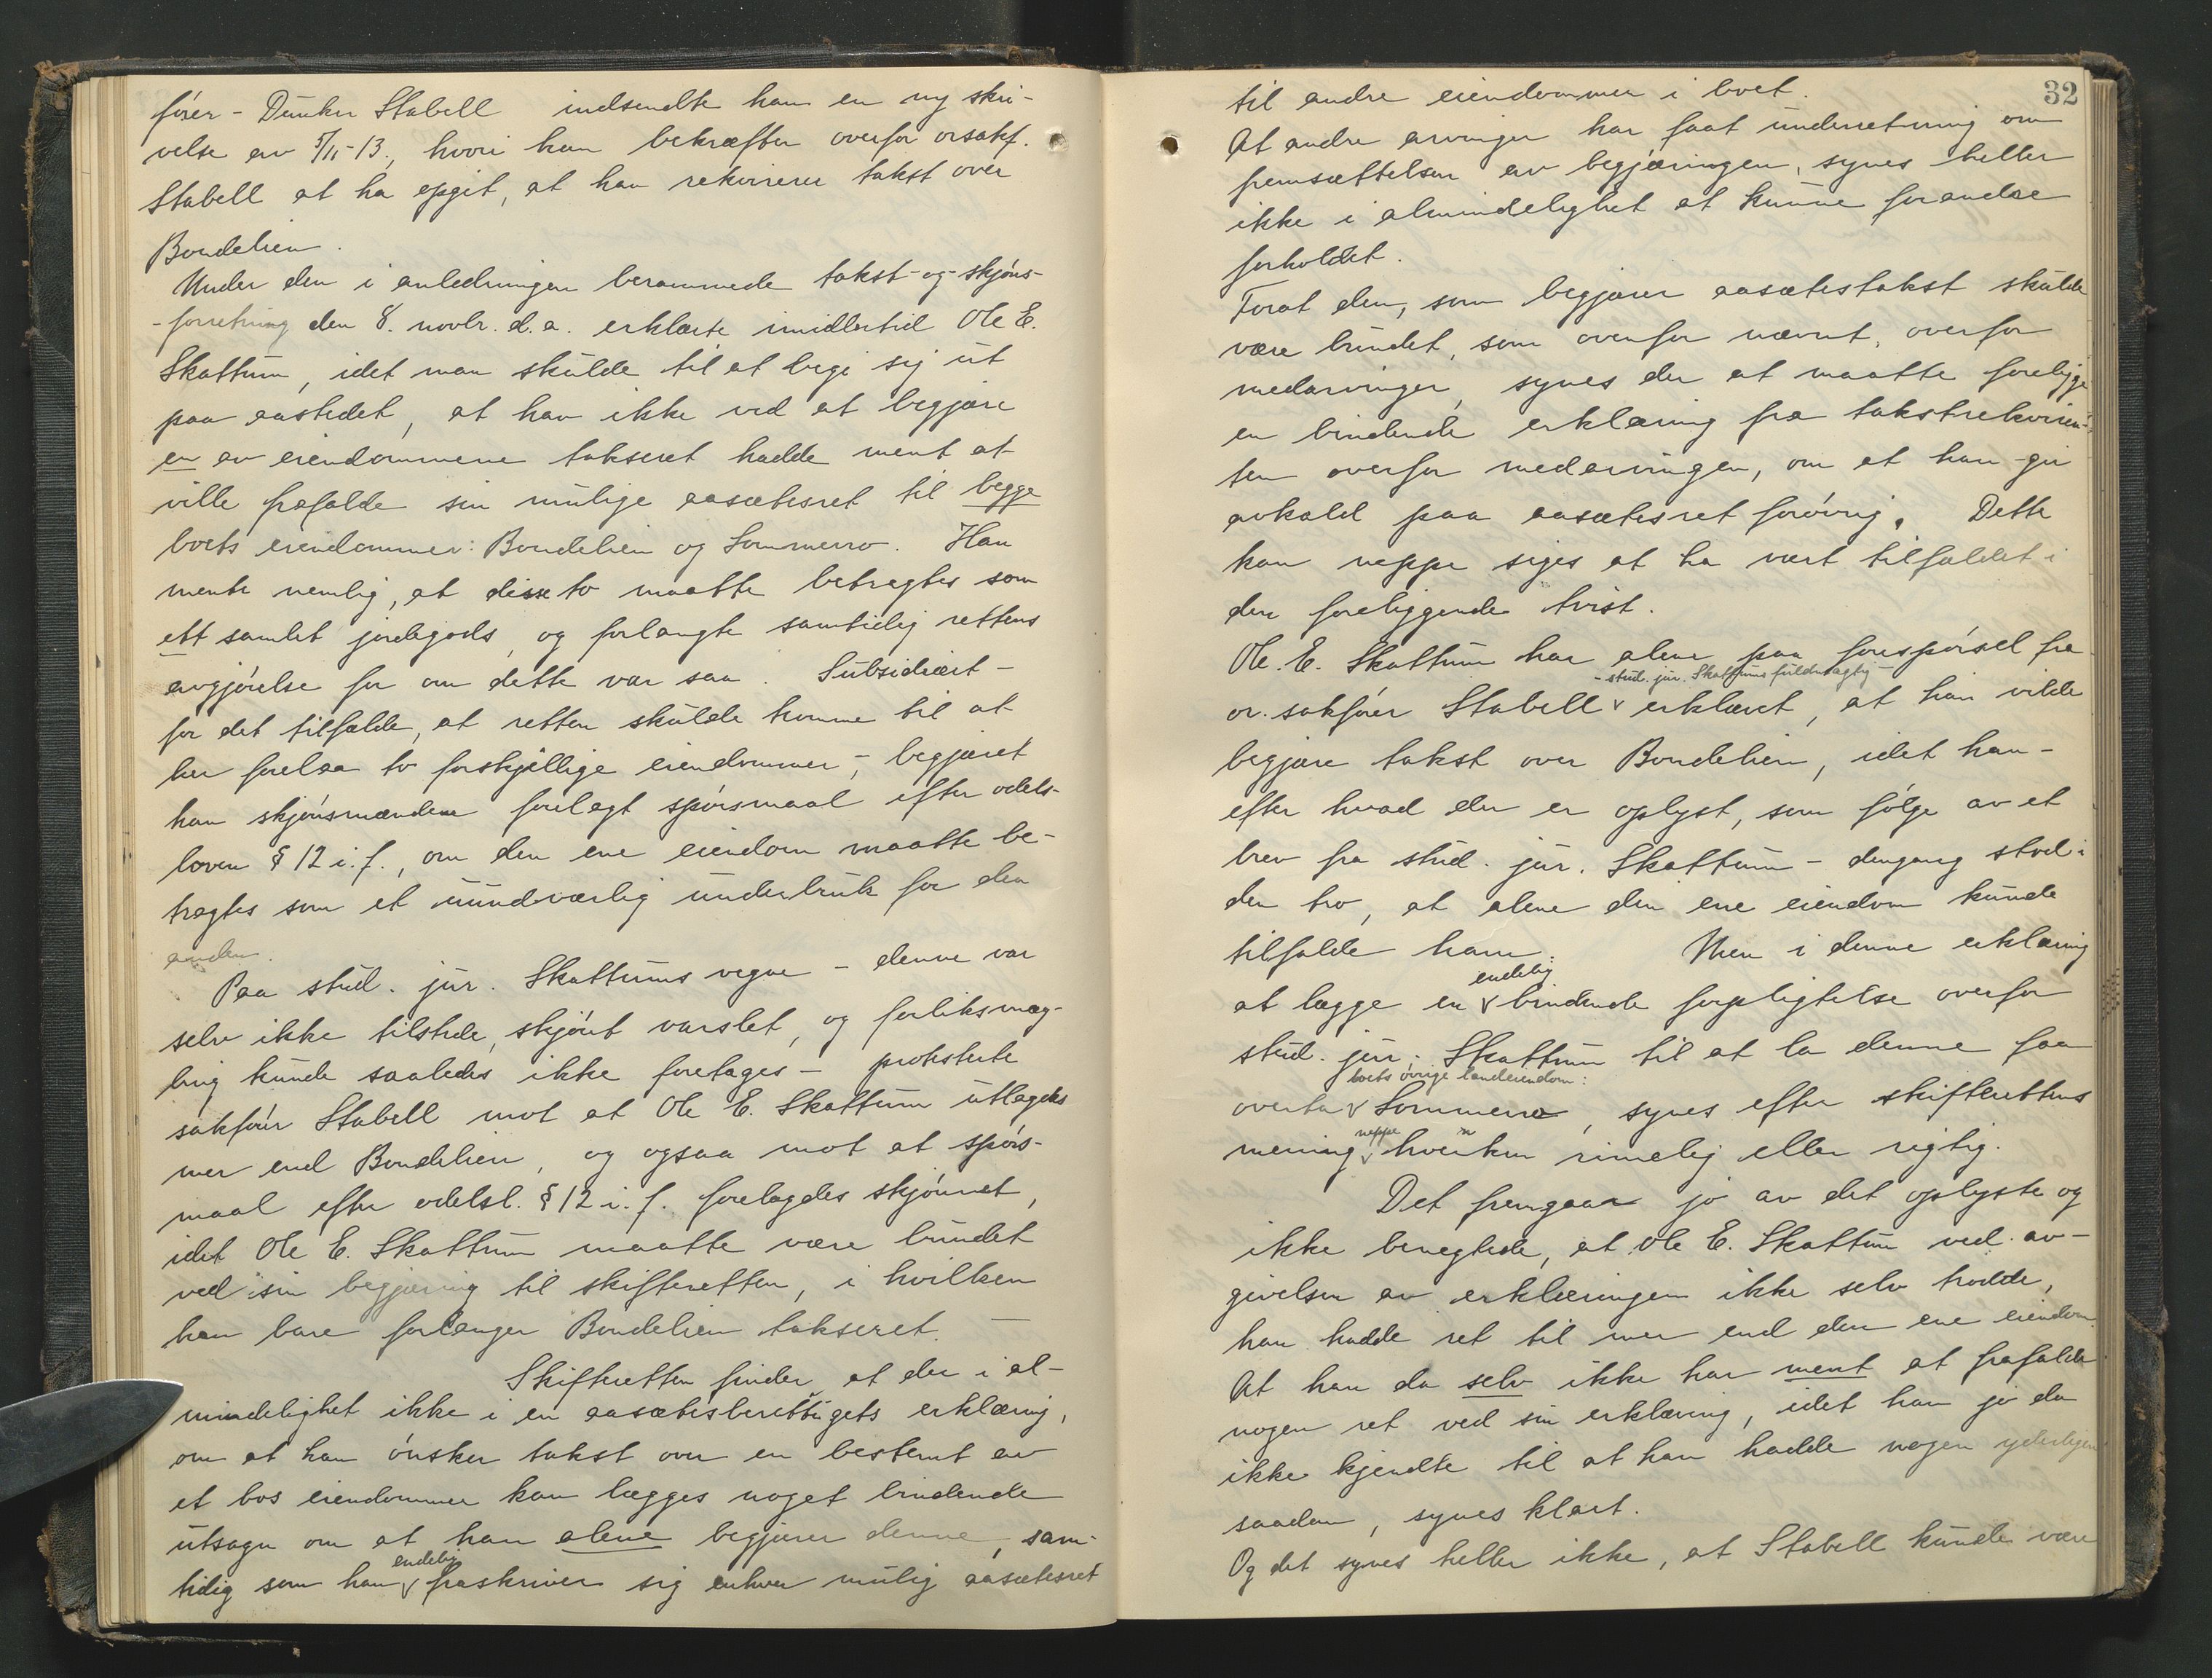 fører - Dunker Stabell indsendte han en ny skri-
velse av 5/11-13., hvori han bekræfter overfor orsakf.
Stabell at ha opgit, at han rekvirerer takst over
Bondelien.
Under den i anledningen berammede takst- og skjøns-
-forretning den 8. novbr. d.a. erklærte imidlertid Ole E.
Skattum, idet man skulde til at begi sig ut
paa aastedet, at han ikke ved at begjære
en av eiendommene takseret hadde ment at
ville frafalde sin mulige aasætesret til begge
boets eiendommer: Bondelien og Sommerro. Han
mente nemlig, at disse to maatte betragtes som
ett samlet jordegods, og forlangte samtidig rettens
avgjørelse for om dette var saa. Subsidiært -
for det tilfælde, at retten skulde komme til at
her forelaa to forskjellige eiendommer -, begjæret
han skjønsmændene forelagt spørsmaal efter odels-
loven § 12 i.f., om den ene eiendom maatte be-
tragtes som et uundværlig underbruk for den
anden.
Paa stud. jur. Skattums vegne - denne var
selv ikke tilstede, skjønt varslet, og forliksmæg-
ling kunde saaledes ikke foretages - protesterte
sakfører Stabell mot at Ole E. Skattum utlagdes
mer end Bondelien, og ogsaa mot at spørs-
maal efter odelsl. § 12 i.f. forelagdes skjønnet,
idet Ole E. Skattum maatte være bundet
ved sin begjæring til skifteretten, i hvilken
han bare forlanger Bondelien takseret. -
Skifteretten finder, at der i al-
mindelighet ikke i en aasætesberettigets erklæring,
om at han ønsker takst over en bestemt av
et bos eiendommer kan lægges noget bindende
utsagn om at han alene begjærer denne, sam-
endelig
tidig som han fraskriver sig enhver mulig aasætesret
32
til andre eiendommer i boet.
At andre arvinger har faat underretning om
fremsættelsen av begjæringen, synes heller
ikke i almindelighet at kunne forandre
forholdet.
Forat den, som begjærer aasætestakst skulde
være bundet, som ovenfor nævnt, overfor
medarvinger, synes der at maatte foreligge
en bindende erklæring fra takstrekviren-
ten overfor medarvingen, om at han gir
avkald paa aasætesret forøvrig. Dette
kan neppe siges at ha vært tilfældet i
den foreliggende tvist.
Ole E. Skattum har alene paa forespørsel fra
- stud. jur. Skattums fuldmægtig -
or. sakfører Stabell erklæret, at han vilde
begjære takst over Bondelien, idet han -
efter hvad der er oplyst, som følge av et
brev fra stud. jur. Skattum - dengang stod i
den tro, at alene den ene eiendom kunde
tilfalde ham. Men i denne erklæring
endelig
at lægge en bindende forpligtelse overfor
stud. jur. Skattum til at la denne faa
boets øvrige landeiendom:
overta Sommerro, synes efter skifterettens
neppe
mening hverken rimelig eller rigtig.
Det fremgaar jo av det oplyste og
ikke benegtede, at Ole E. Skattum ved av-
givelsen av erklæringen ikke selv trodde,
han hadde ret til mer end den ene eiendom.
At han da selv ikke har ment at frafalde
nogen ret ved sin erklæring, idet han jo da
ikke kjendte til at han hadde nogen yderligere
saadan, synes klart.
Og det synes heller ikke, at Stabell kunde være